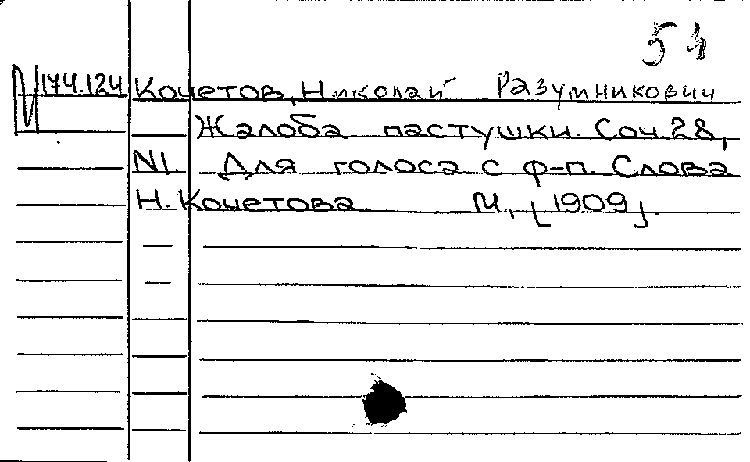 174.124 Кочетов, Николай Разумникович
Жалоба пастушки. Соч. 28,
N1 Для голоса с ф-п. Слова
Н. Кочетова М., [1909].